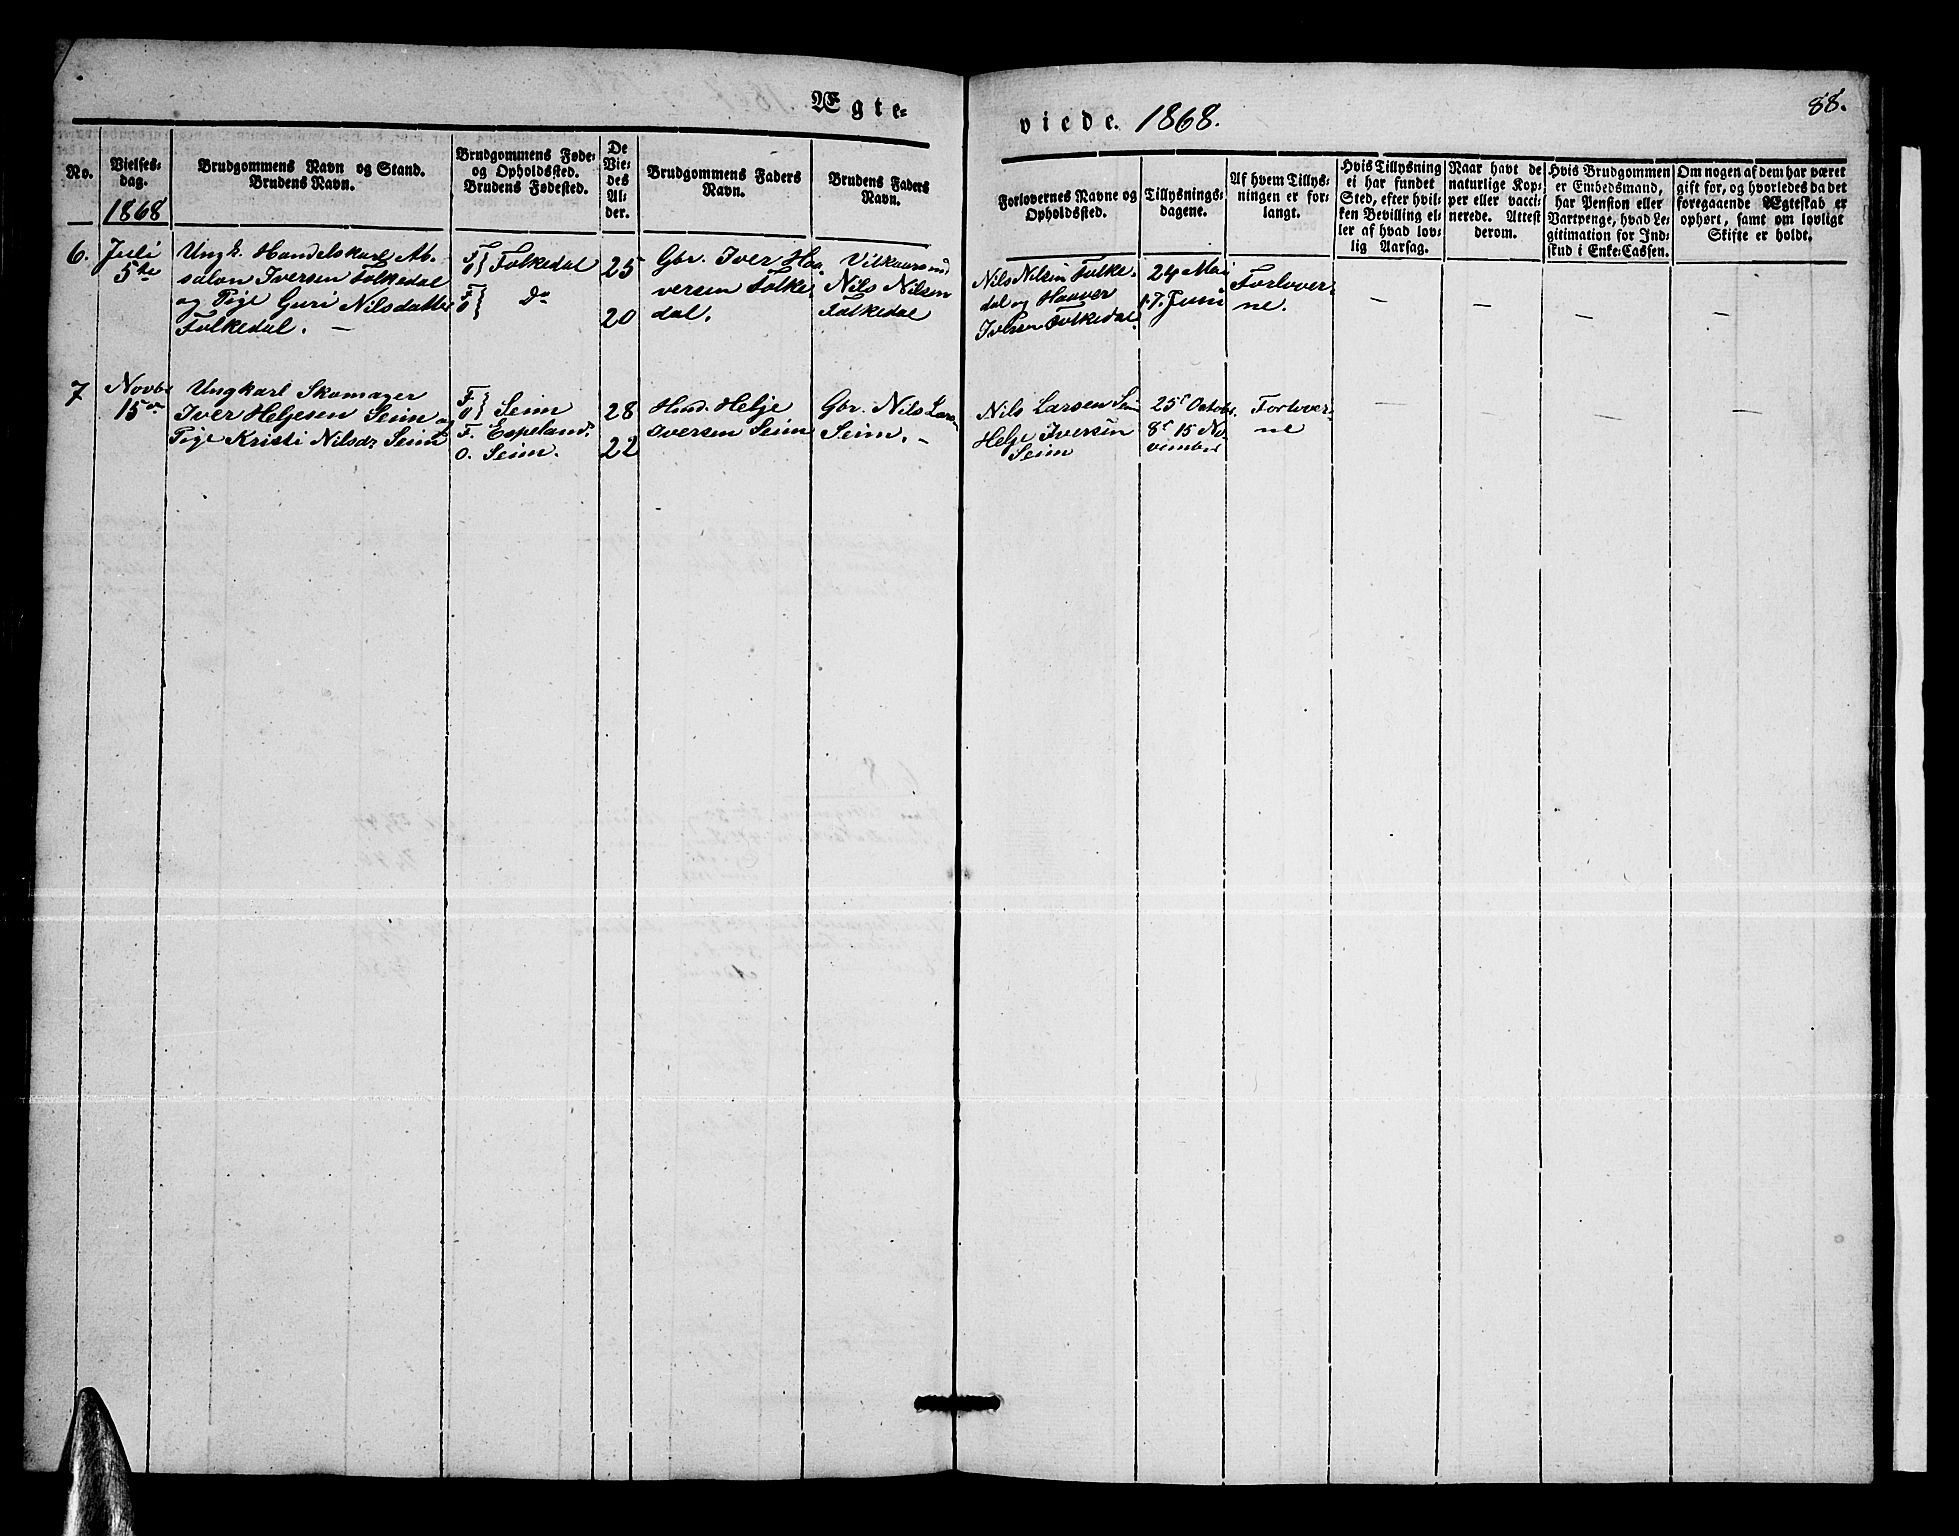 Ægte-
viede. 1868.
88.
No.
Vielses-
dag.
1868
Brudgommens Navn og Stand.
Brudens Navn.
Brudgommens Føde-
og Opholdssted.
Brudens Fødested.
De
Vie-
des
Al-
der.
Brudgommens Faders
Navn.
Brudens Faders
Navn.
Forlovernes Navne og
Opholdssted.
Tillysnings-
dagene.
Af hvem Tillys-
ningen er for-
langt.
Hvis Tillysning
ei har fundet
Sted, efter hvil-
ken Bevilling el-
ler af hvad lov-
lig Aarsag.
Naar havt de
naturlige Kop-
per eller vacci-
nerede. Attest
derom.
Hvis Brudgommen
er Embedsmand,
har Pension eller
Vartpenge, hvad Le-
gitimation for Ind-
skud i Enke-Cassen.
Om nogen af dem har været
gift før, og hvorledes da det
foregaaende Ægteskab er
ophørt, samt om lovligt
Skifte er holdt.
6.
Juli
5te
Ungk. Handelskarl Ab-
salon Iversen Folkedal
og Pige Guri Nilsdatter
Folkedal. —
F
O } Folkedal
F
O } Do
25
20
Gbr. Iver Haa-
versen Folke-
dal.
Vilkaarsmd
Nils Nilsen
Folkedal
Nils Nilsen Folke-
dal og Haaver
Iversen Folkedal.
24 Mai
1. 7. Juni
Forlover-
ne.
—
—
—
—
7
Novbr
15de
Ungkarl Skomager
Iver Heljesen Seim og
Pige Kristi Nilsdr Seim
F
O } Seim
F. Espeland.
O. Seim.
28
22
Hmd. Helje
Iversen Seim
Gbr. Nils Larsen
Seim. —
Nils Larsen Seim
Helje Iversen
Seim
25d Octobr.
8d 15 No-
vember
Forlover-
ne
—
—
—
—